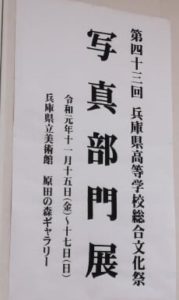 第四十三回 兵庫県高等学校総合文化祭
写真部門展
令和元年十一月十五日(金)～十七日(日)
兵庫県立美術館 原田の森ギャラリー